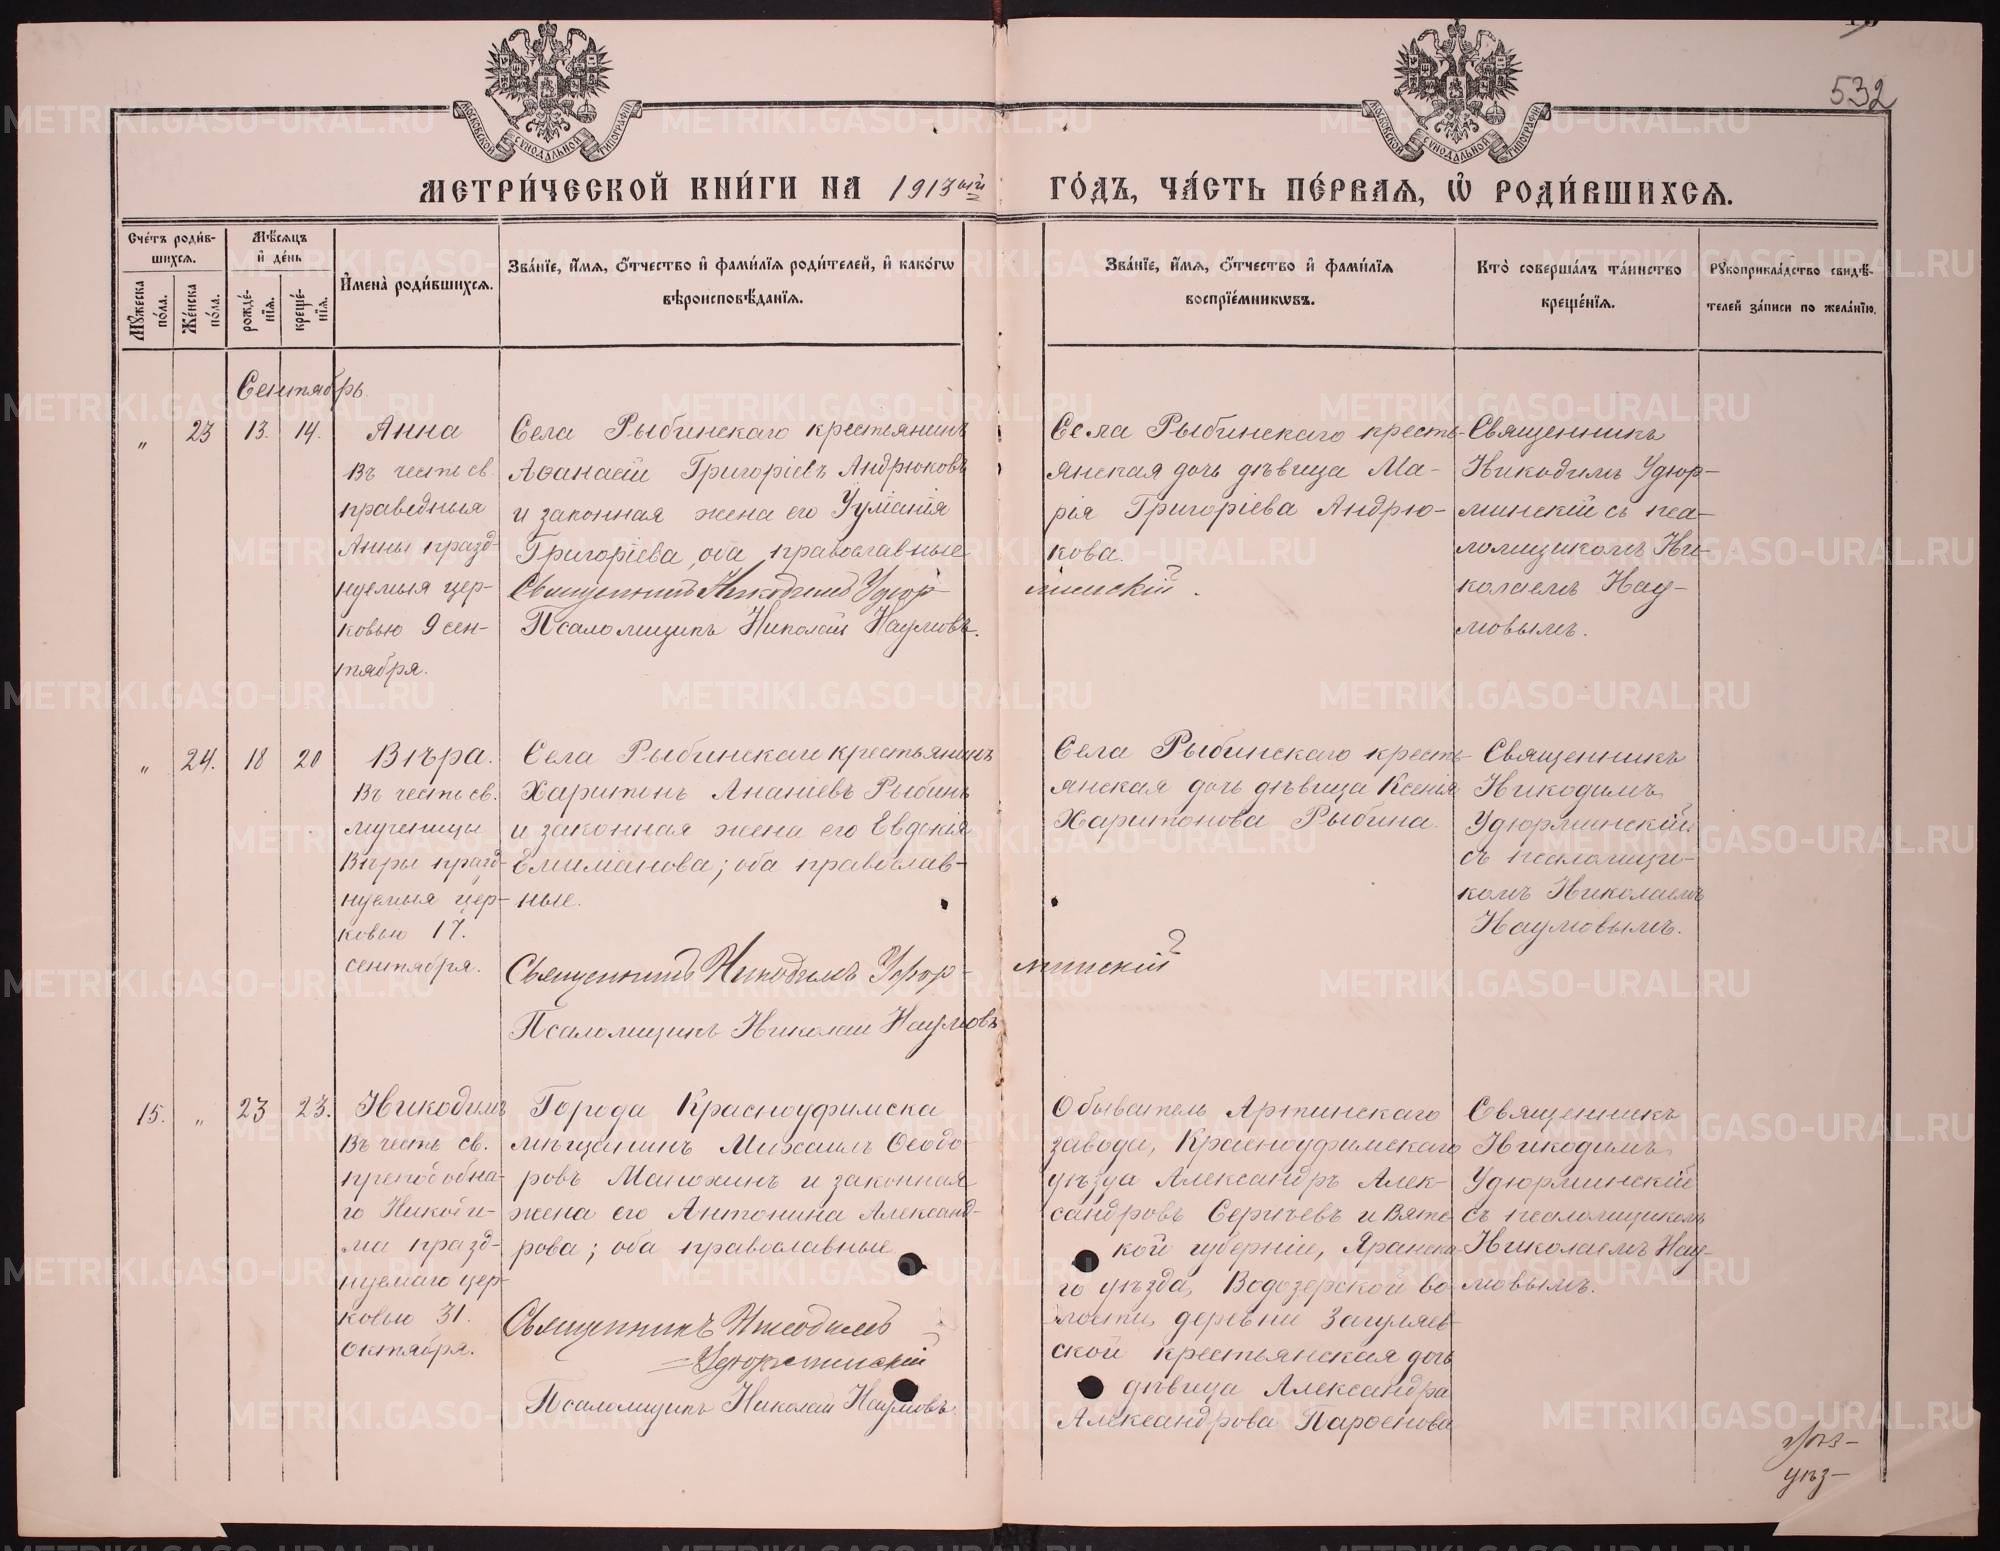 532
МОСКОВСКОЙ СѴНОДАЛЬНОЙ ТИПОГРАФІИ
МОСКОВСКОЙ СѴНОДАЛЬНОЙ ТИПОГРАФІИ
МЕТРИ́ЧЕСКОЙ КНИ́ГИ НА 1913ый ГО́ДЪ, ЧА́СТЬ ПЕ́РВАѦ, Ѡ҆ РОДИ́ВШИХСѦ.
Сче́тъ роди́в-
шихсѧ.
Мꙋжеска по́ла.
Же́нска по́ла.
Мѣ́сѧцъ
и҆ де́нь
рожде́-
нїѧ.
креще́-
нїѧ.
И҆мена̀ роди́вшихсѧ.
Зва́нїе, и҆́мѧ, ѻ҆́тчество и҆ фами́лїѧ роди́телей, и҆ како́гѡ
вѣроисповѣ́данїѧ.
Зва́нїе, и҆́мѧ, ѻ҆́тчество и҆ фами́лїѧ
воспрїе́мникѡвъ.
Кто̀ соверша́лъ та́инство
креще́нїѧ.
Рꙋкоприкла́дство свидѣ́-
телей за́писи по жела́нїю.
Сентябрь.
„ 23 13. 14.
Анна
Въ честь св.
праведныя
Анны празд-
нуемыя цер-
ковью 9 сен-
тября.
Села Рыбинскаго крестьянинъ
Аѳанасій Григоріевъ Андрюковъ
и законная жена его Іуліанія
Григоріева, оба православные
Священникъ Никодимъ Удюр-
минскій.
Псаломщикъ Николай Наумовъ.
Села Рыбинскаго кресть-
янская дочь дѣвица Ма-
рія Григоріева Андрю-
кова.
Священникъ
Никодимъ Удюр-
минскій съ пса-
ломщикомъ Ни-
колаемъ Нау-
мовымъ.
„ 24. 18 20
Вѣра.
Въ честь св.
мученицы
Вѣры празд-
нуемыя цер-
ковью 17.
сентября.
Села Рыбинскаго крестьянинъ
Харитонъ Ананіевъ Рыбинъ
и законная жена его Евдокія
Емиліанова; оба православ-
ные.
Священникъ Никодимъ Удюр-
минскій
Псаломщикъ Николай Наумовъ
Села Рыбинскаго кресть-
янская дочь дѣвица Ксенія
Харитонова Рыбина.
Священникъ
Никодимъ
Удюрминскій
съ псаломщи-
комъ Николаемъ
Наумовымъ.
15. „ 23 23.
Никодимъ
Въ честь св.
преподобна-
го Никоди-
ма празд-
нуемаго цер-
ковью 31.
октября.
Города Красноуфимска
мѣщанинъ Михаилъ Ѳеодо
ровъ Манохинъ и законная
жена его Антонина Александ-
рова; оба православные
Священникъ Никодимъ
Удюрминскій
Псаломщикъ Николай Наумовъ.
Обыватель Артинскаго
завода, Красноуфимскаго
уѣзда Александръ Алек-
сандровъ Сергѣевъ и Вятс
кой губерніи, Яранска
го уѣзда, Водозерской во
лости, деревни Загуляев-
ской крестьянская дочь
дѣвица Александра
Александрова Парѳенова
Священникъ
Никодимъ
Удюрминскій
съ псаломщикомъ
Николаемъ Нау-
мовымъ.
уѣз-
METRIKI.GASO-URAL.RU